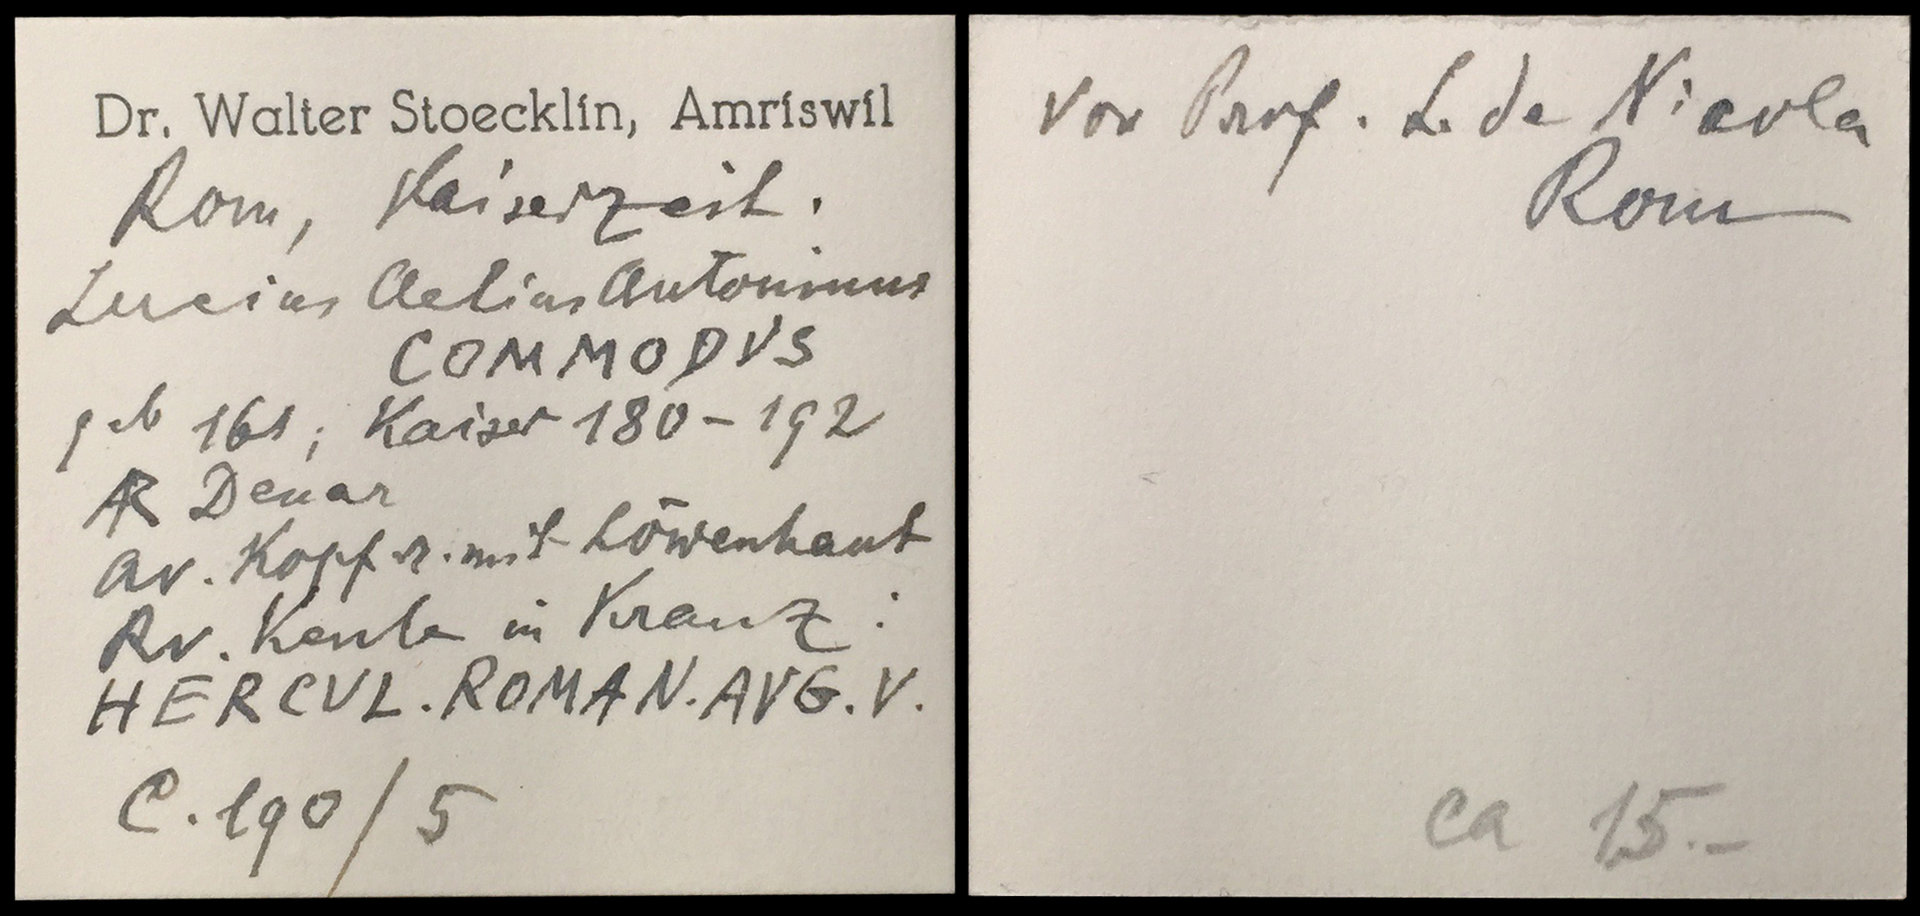 Dr. Walter Stoecklin, Amriswil
Rom, Kaiserzeit.
Lucius Aelius Antoninus
COMMODVS
geb 161; Kaiser 180-192
AR Denar
Av. Kopf r. mit Löwenhaut
Rv. Keule in Kranz:
HERCVL.ROMAN.AVG.V.
C.190/5
von Prof. L. de Nicola
Rom
ca 15.-